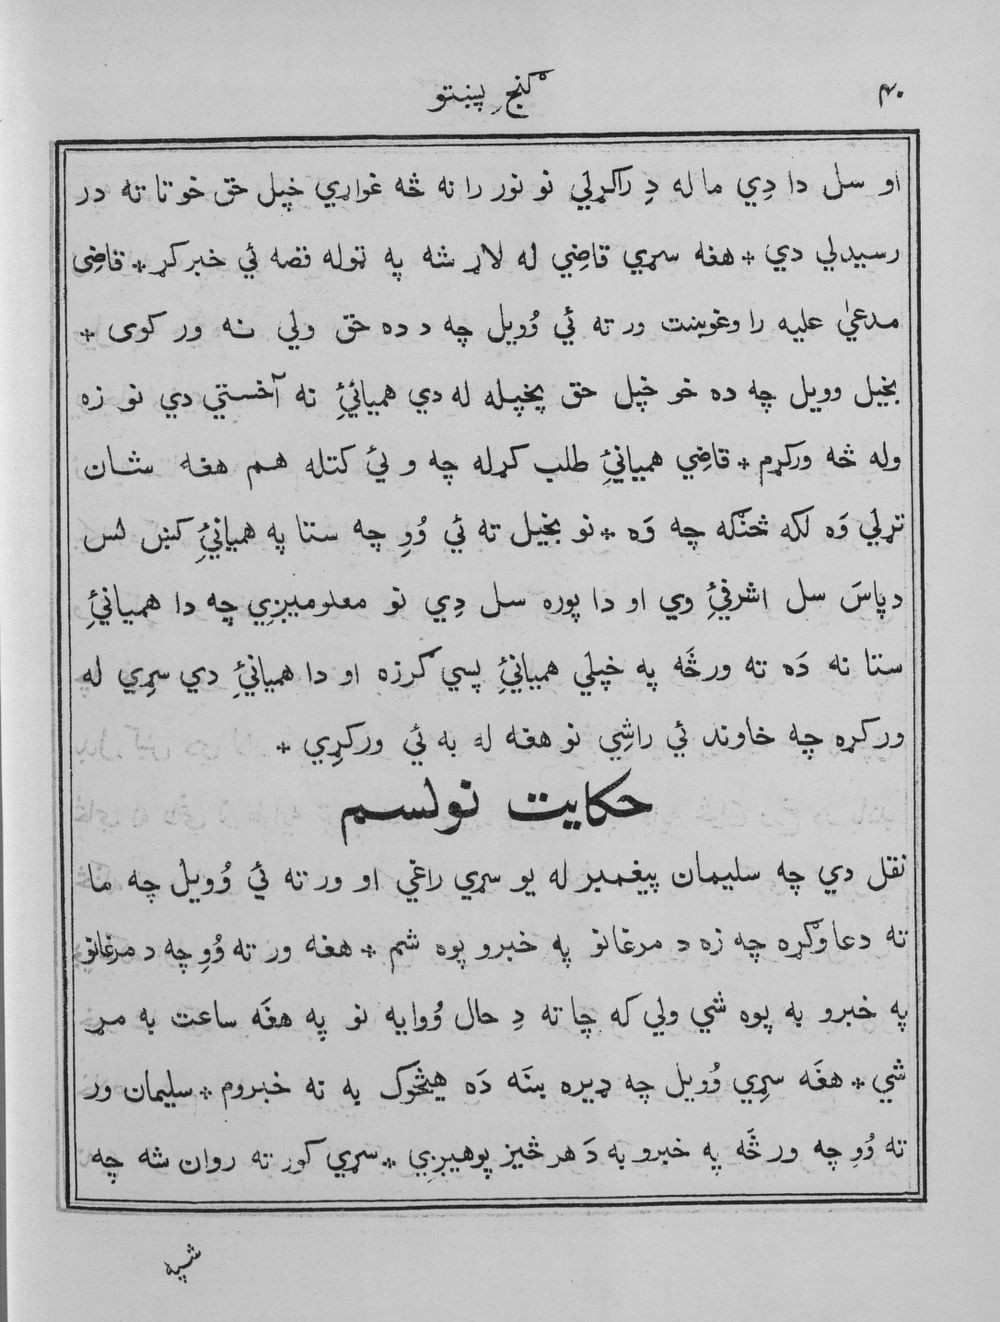 ۴۰
گنجِ پښتو
او سل دا دِي ما له دِ راکړلي نو نور را نه څه غواړي خپل حق خو تا ته در
رسيدلي دي * هغه سړي قاضِي له لاړ شه په ټوله قصه ئي خبر کړ * قاضِی
مدعیٰ عليه را وغوښت ور ته ئي وُويل چه د ده حق ولي نه ور کوی *
بخيل وويل چه ده خو خپل حق پخپله له دي هميانئ نه آخستي دي نو زه
وله څه ورکړم * قاضِي هميانئ طلب کړله چه و لئ کتله هم هغه شان
تړلي وَه لکه څنګه چه وَه * نو بخيل ته ئي وُوِ چه ستا په هميانئ کښ لس
دپاسَ سل اشرفئ وي او دا پوره سل دِي نو معلوميږي چه دا هميانئ
ستا نه دَه ته ورڅَه په خپلي هميانئ پسي ګرزه او دا هميانئ دي سړي له
ورکړه چه خاوند ئي راشِي نو هغه له به ئي ورکړي *
حکايت نولسم
نقل دي چه سليمان پيغمبر له يو سړي راغي او ور ته ئي وُويل چه ما
ته دعا وکړه چه زه د مرغانو په خبرو پوه شم * هغه ور ته وُوِ چه د مرغانو
په خبرو به پوه شي ولي که چا ته دِ حال وُوايه نو په هغَه ساعت به مړ
شي * هغَه سړي وُويل چه ډيره ښَه دَه هيڅوک به نه خبروم * سليمان ور
ته وُوِ چه ورڅَه په خبرو به دَ هر څيز پوهيږي * سړي کور ته روان شه چه
شپه